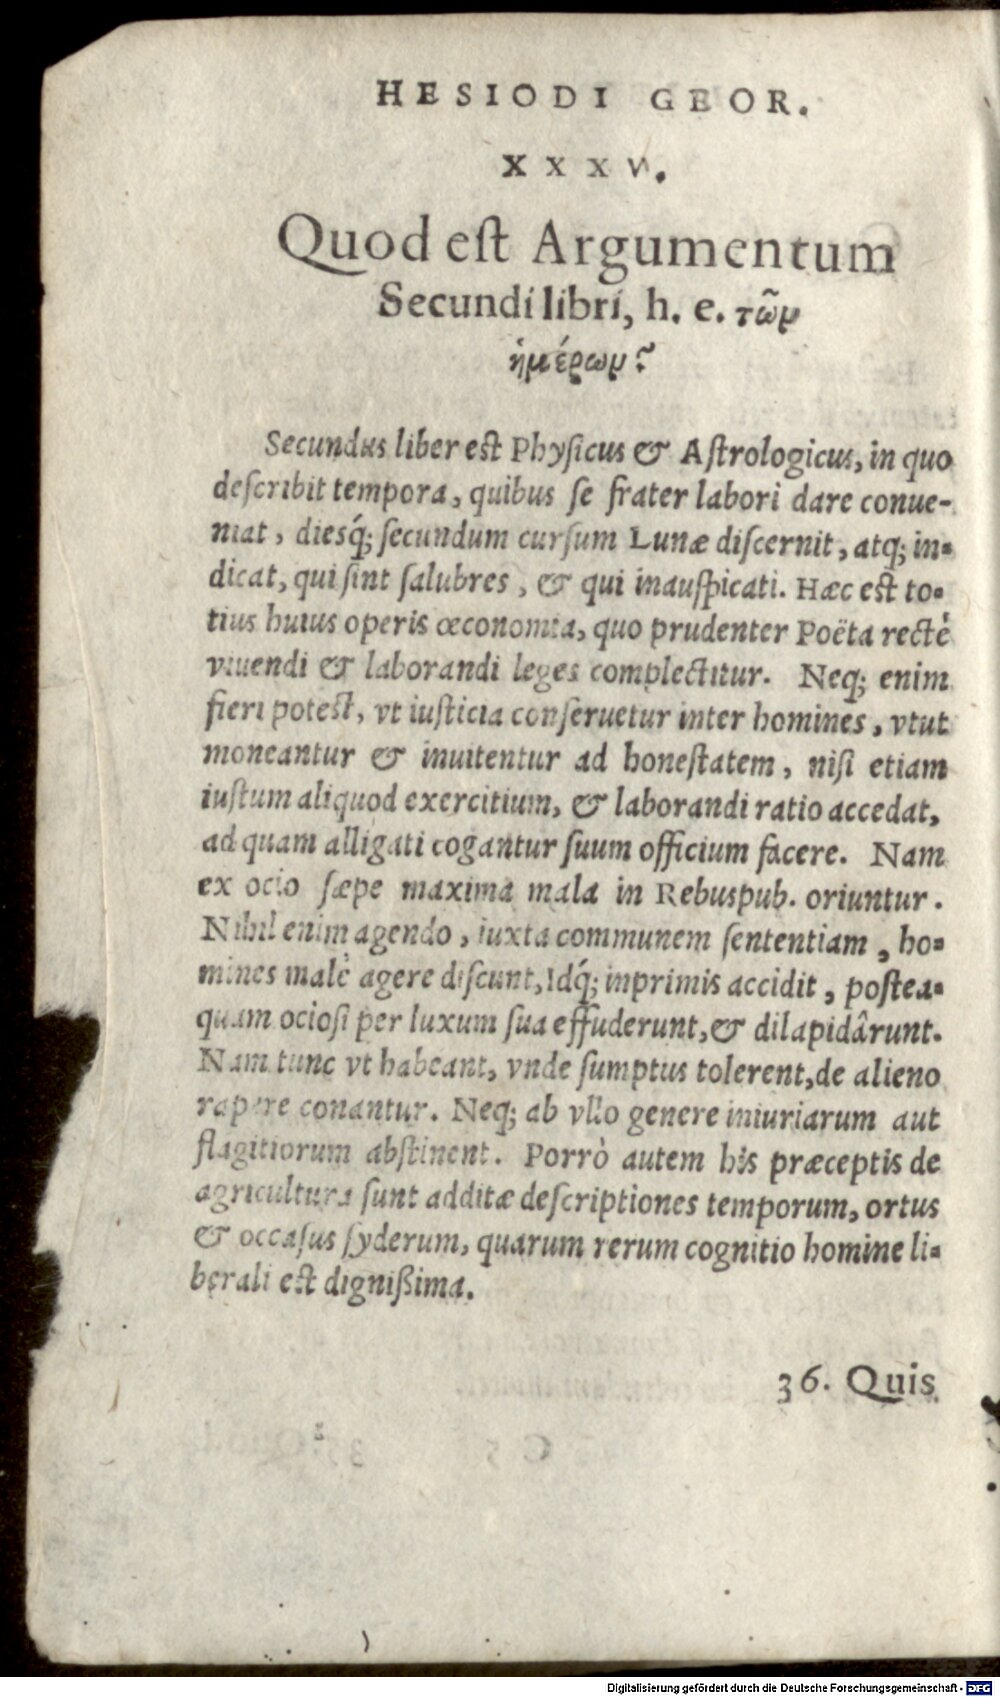 HESIODI GEOR.
XXXV.
Quod eſt Argumentum
Secundi libri, h. e. τῶν
ἡμέρων?
Secundus liber est Phyſicus & Aſtrologicus, in quo
deſcribit tempora, quibus ſe frater labori dare conue-
niat, diesq́; ſecundum curſum Lunæ diſcernit, atq; in-
dicat, qui ſint ſalubres, & qui inauſpicati. Hæc est to-
tius huius operis œconomia, quo prudenter Poëta rectè
viuendi & laborandi leges complectitur. Neq; enim
fieri potest, vt iuſticia conſeruetur inter homines, vtut
moneantur & inuitentur ad honeſtatem, niſi etiam
iuſtum aliquod exercitium, & laborandi ratio accedat,
ad quam alligati cogantur ſuum officium facere. Nam
ex ocio ſæpe maxima mala in Rebuspub. oriuntur.
Nihil enim agendo, iuxta communem ſententiam, ho-
mines malè agere diſcunt, Idq́; inprimis accidit, postea-
quam ocioſi per luxum ſua effuderunt, & dilapidârunt.
Nam tunc vt habeant, vnde ſumptus tolerent, de alieno
rapere conantur. Neq; ab vllo genere iniuriarum aut
flagitiorum abſtinent. Porrò autem his præceptis de
agricultura ſunt additæ deſcriptiones temporum, ortus
& occaſus ſyderum, quarum rerum cognitio homine li-
berali est dignißima.
36. Quis
Digitalisierung gefördert durch die Deutsche Forschungsgemeinschaft - DFG